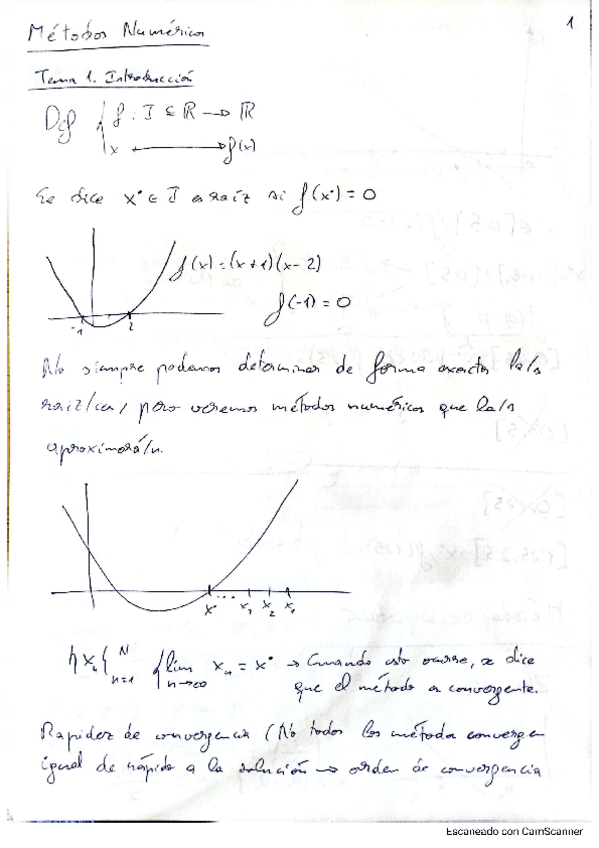 1
Métodos Numéricos
Tema 1. Introducción
Def { f : I ⊆ ℝ → ℝ
x ⟼ f(x)
Se dice x* ∈ I es raíz si f(x*) = 0
f(x) = (x+1)(x-2)
f(-1) = 0
-1 2
No siempre podemos determinar de forma exacta la/s
raíz/ces, pero veremos métodos numéricos que la/s
aproximará/n.
x* ... x3 x2 x1
{xn} N n=1 { lim n→∞ xn = x* → Cuando esto ocurre, se dice
que el método es convergente.
Rapidez de convergencia (No todos los método convergen
igual de rápido a la solución → orden de convergencia
Escaneado con CamScanner